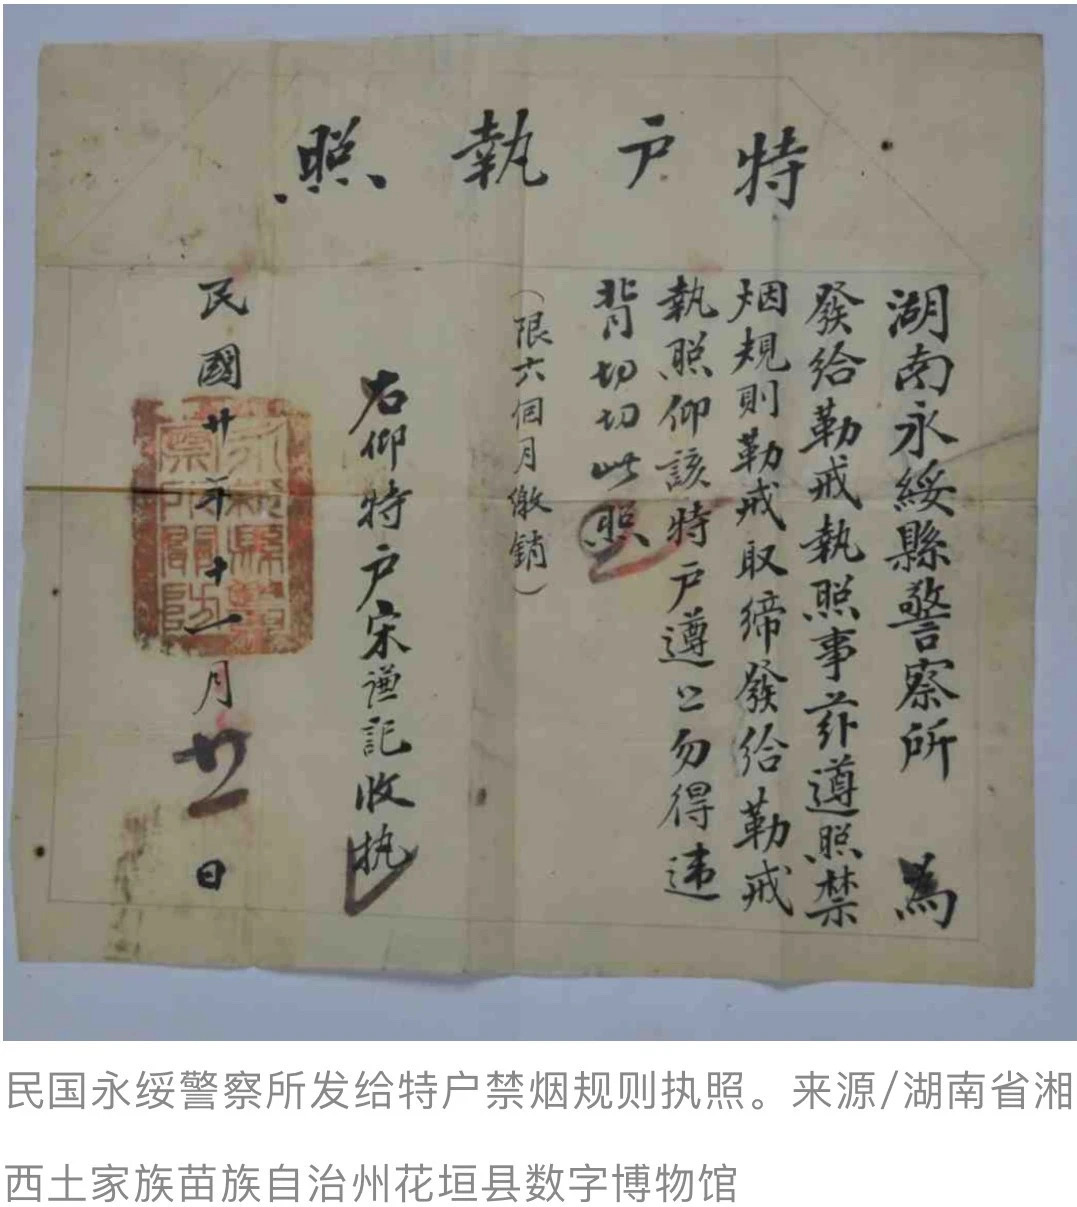 特户執照
湖南永綏縣警察所 為
發給勒戒執照事茲遵照禁
烟規則勒戒取締發給勒戒
執照仰該特户遵照勿得違
背切切此照
（限六個月繳銷）
右仰特户宋謙記收执
民國廿年十一月廿二日
民国永绥警察所发给特户禁烟规则执照。来源/湖南省湘
西土家族苗族自治州花垣县数字博物馆